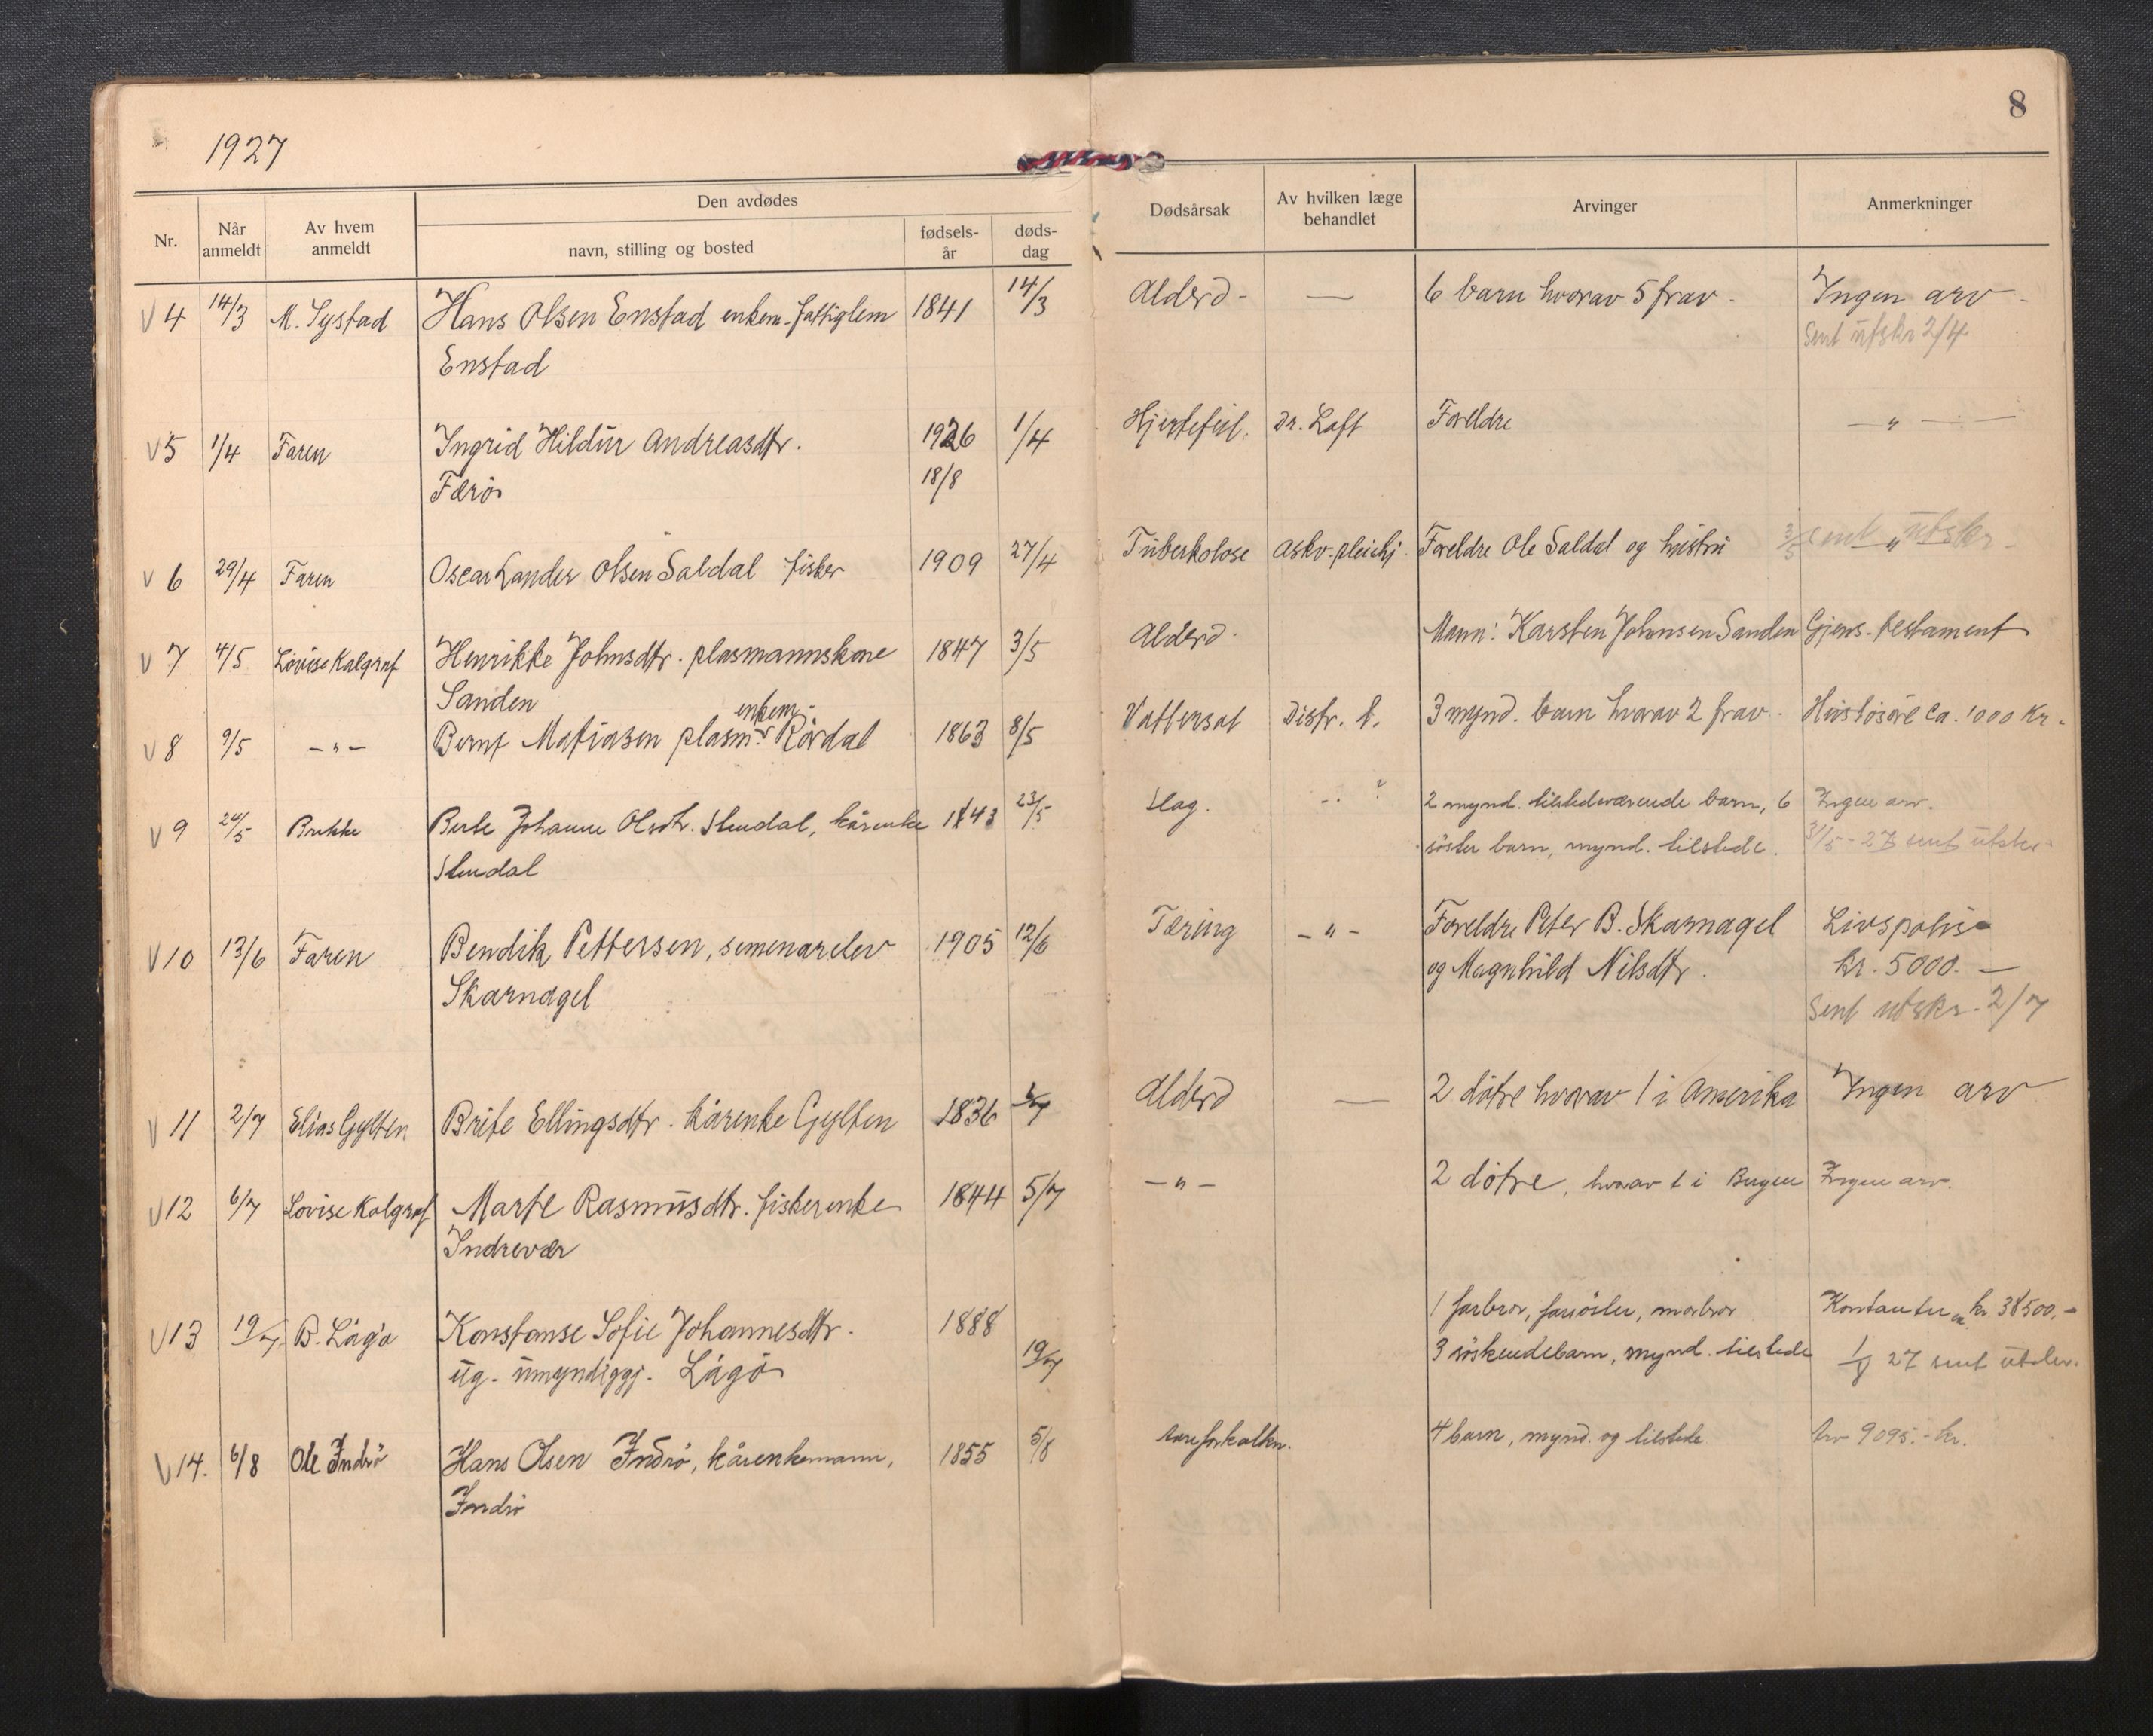 8
1927
Den avdødes
Nr.
Når anmeldt
Av hvem anmeldt
navn, stilling og bosted
fødsels-år
døds-dag
Dødsårsak
Av hvilken læge behandlet
Arvinger
Anmerkninger
V 4 14/3 M. Systad Hans Olsen Enstad enkem. fattiglem 1841 14/3 Alderd - — 6 barn hvorav 5 frav. Ingen arv -
Enstad Sent utskr 2/4
V 5 1/4 Faren Ingrid Hildur Andreasdtr. 1926 1/4 Hjertefeil. Dr. Loft Foreldre — " —
Færö 18/8
V 6 29/4 Faren Oscar Lander Olsen Saldal fisker 1909 27/4 Tuberkolose Askv. pleiehj. Foreldre Ole Saldal og hustru 3/5 sent " utskr.
V 7 4/5 Lovise Kalgraf Henrikke Johnsdtr. plasmannskone 1847 3/5 Alderd. Mann: Karsten Johnsen Sanden Gjens. testament
Sanden
enkem.
V 8 9/5 - " - Bernt Matiasen plasm. Rördal 1863 8/5 Vattersot Distr. l. 3 mynd. barn hvorav 2 frav. Husløsöre ca. 1000 Kr.
V 9 24/5 Brekke Berte Johanne Olsdtr. Stendal, kårenke 1843 23/5 Slag. -. ? 2 mynd. tilstedeværende barn, 6 Ingen arv.
Stendal söster barn, mynd. tilstede. 31/5 - 27 sent utskr.
V 10 13/6 Faren Bendik Pettersen, semenarelev 1905 12/6 Tæring - " - Foreldre Peter B. Skarnagel Livspolise
Skarnagel og Magnhild Nilsdtr. kr. 5000. —
Sent utskr. 2/7
V 11 2/7 Elias Gylten Brite Ellingsdtr. kårenke Gylten 1836 Alderd — 2 dötre hvorav 1 i Amerika Ingen arv
V 12 6/7 Lovise Kalgraf Marte Rasmusdtr. fiskerenke 1844 5/7 - " - 2 dötre, hvorav 1 i Bergen Ingen arv.
Indrevær
V 13 19/7 B. Lågö Konstanse Sofie Johannesdtr. 1888 1 farbror, farsöster, morbror Kontanter ca. kr. 38500.-
ug. umyndiggj. Lågö 19/7 3 söskendebarn, mynd. tilstede 1/8 27 sent utskr.
V 14. 6/8 Ole Indrö Hans Olsen Indrö, kårenkemann, 1855 5/8 Aareforkalkn. 4 barn, mynd. og tilstede Arv 9095.- kr.
Indrö